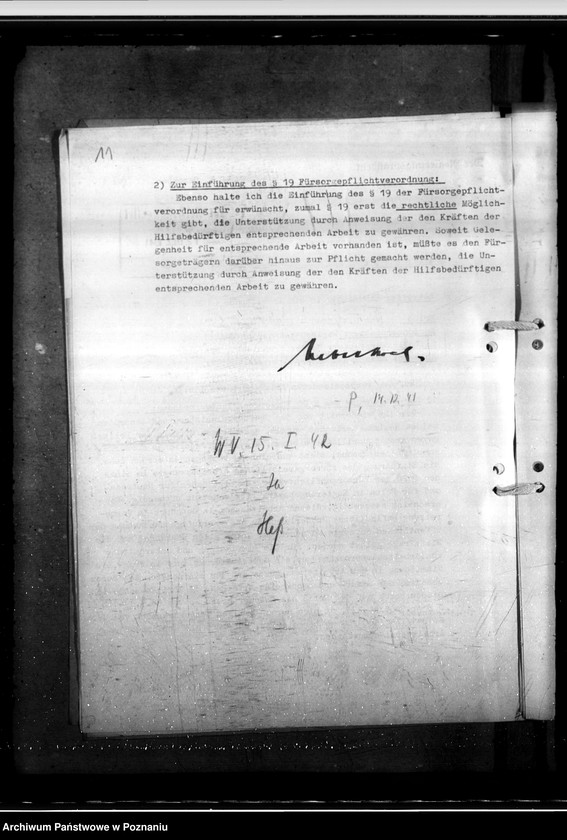 11
2) Zur Einführung des § 19 Fürsorgepflichtverordnung:
Ebenso halte ich die Einführung des § 19 der Fürsorgepflicht-
verordnung für erwünscht, zumal § 19 erst die rechtliche Möglich-
keit gibt, die Unterstützung durch Anweisung der den Kräften der
Hilfsbedürftigen entsprechenden Arbeit zu gewähren. Soweit Gele-
genheit für entsprechende Arbeit vorhanden ist, müßte es den Für-
sorgeträgern darüber hinaus zur Pflicht gemacht werden, die Un-
terstützung durch Anweisung der den Kräften der Hilfsbedürftigen
entsprechenden Arbeit zu gewähren.
WV. 15. I 42
Archiwum Państwowe w Poznaniu